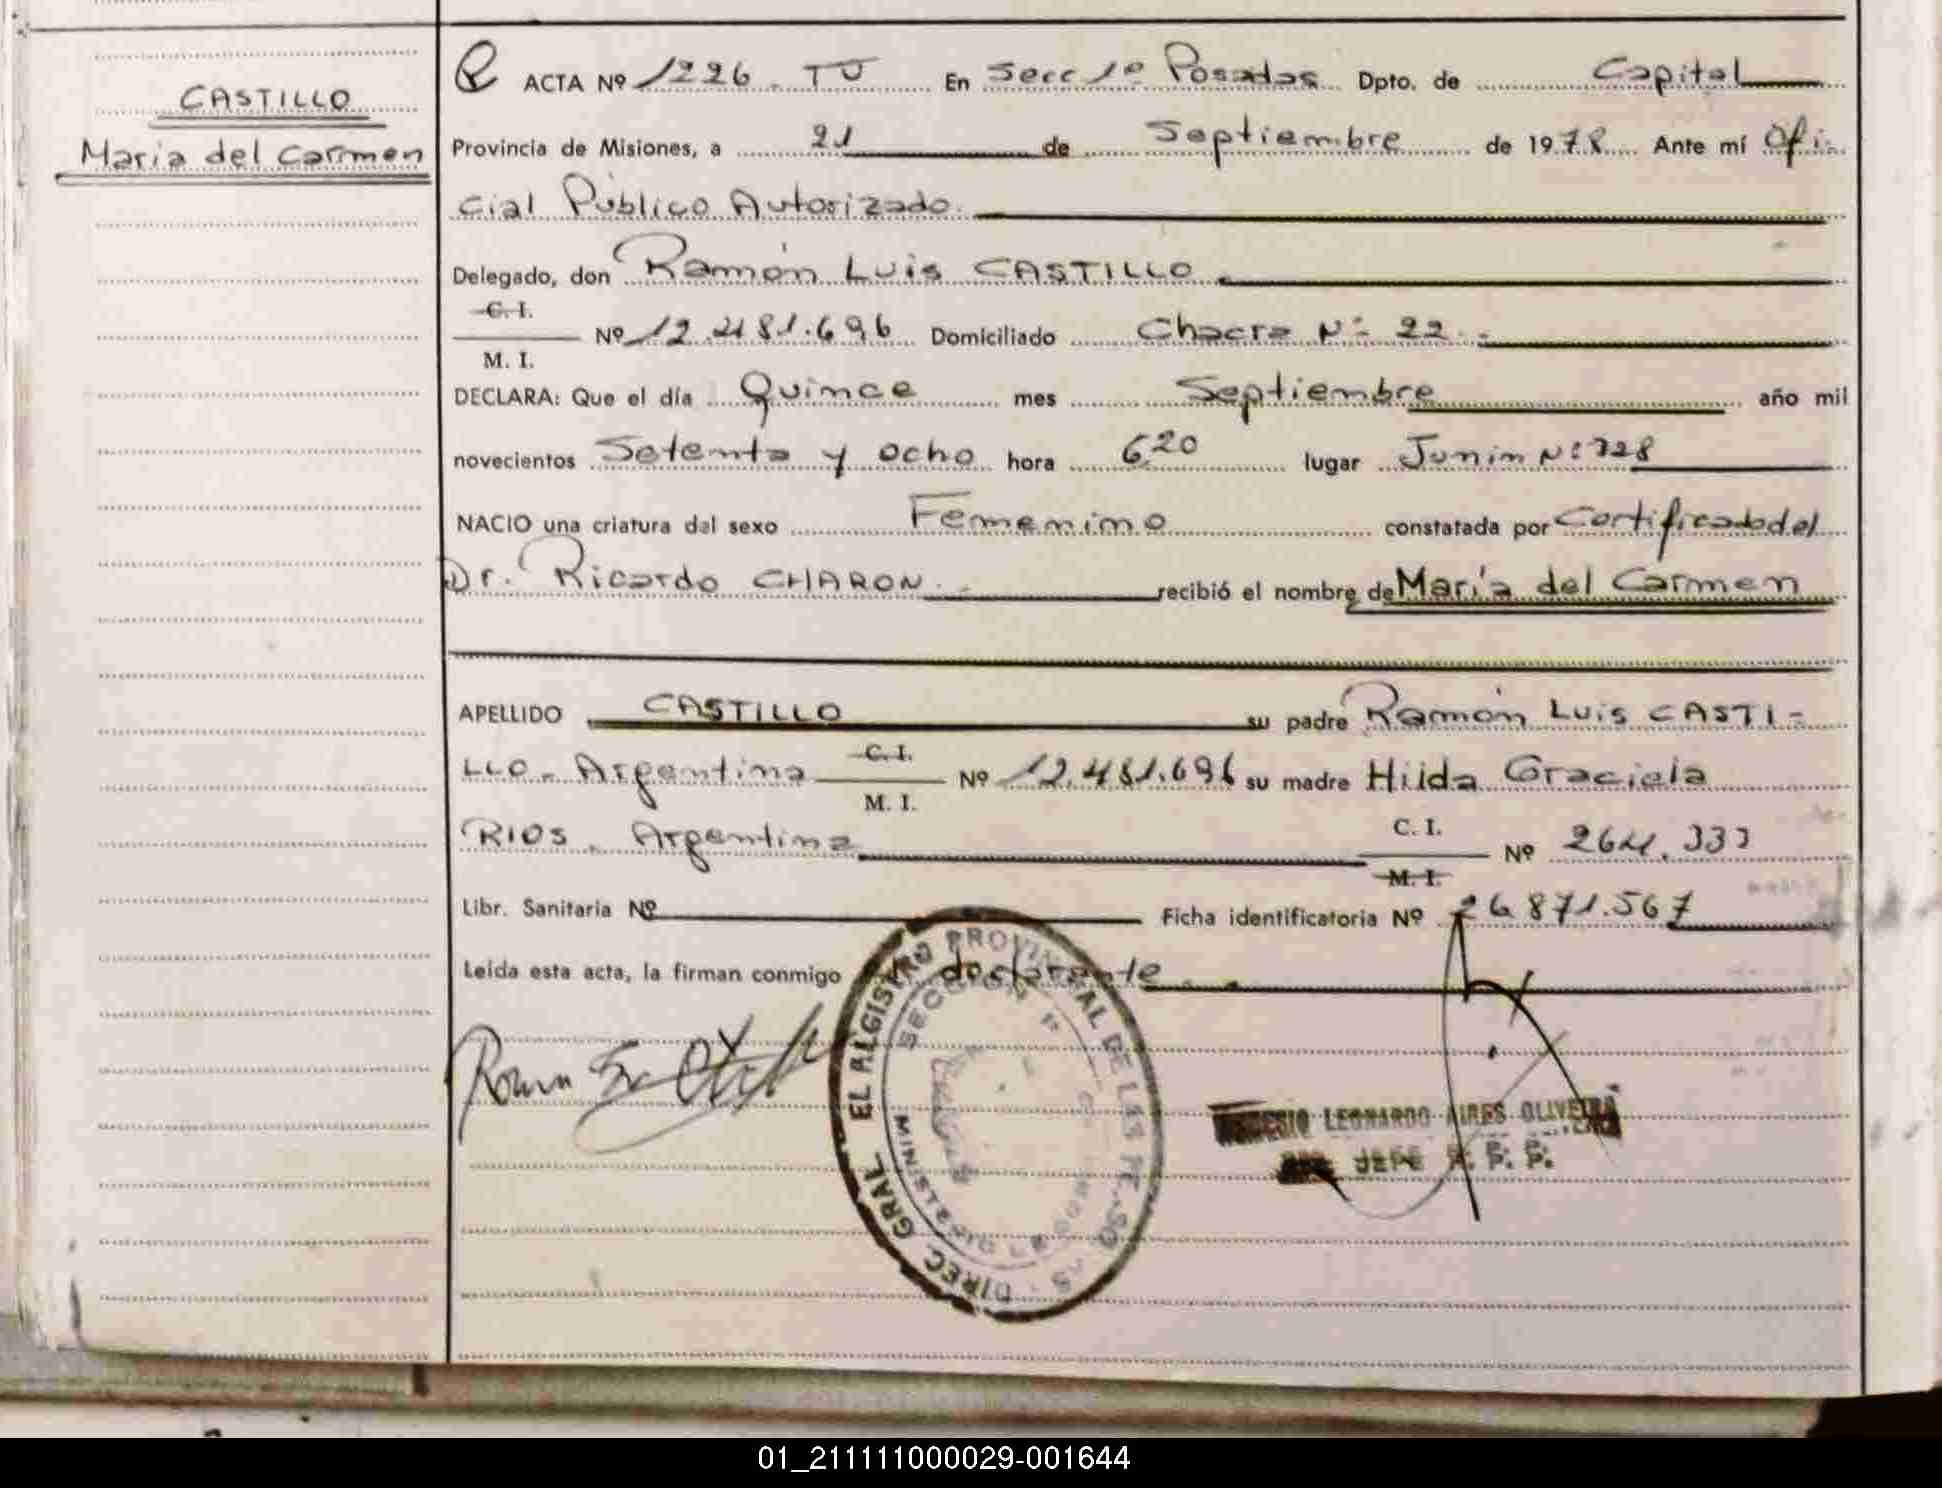 CASTILLO
Maria del Carmen
ACTA Nº 1226. TU En Secc 1º Posadas Dpto. de Capital
Provincia de Misiones, a 21 de Septiembre de 1978 Ante mí Ofi-
cial Público Autorizado.
Delegado, don Ramón Luis CASTILLO.
C. I.
M. I.
Nº 12.481.696 Domiciliado Chacra Nº 22.-
DECLARA: Que el día Quince mes Septiembre año mil
novecientos Setenta y ocho hora 6,20 lugar Junin Nº 728
NACIO una criatura del sexo Femenino constatada por Certificado del
Dr. Ricardo CHARON.- recibió el nombre de María del Carmen
APELLIDO CASTILLO su padre Ramón Luis CASTI-
LLO - Argentina C. I. M. I. Nº 12.481.696 su madre Hilda Graciela
RIOS. Argentina C. I. M. I. Nº 264.333
Libr. Sanitaria Nº Ficha identificatoria Nº 26.871.567
Leída esta acta, la firman conmigo el declarante..
DIREC. GRAL. EL REGISTRO PROVINCIAL DE LAS
SECCION
LEONARDO AIRES OLIVEIRA
JEFE R. P. P.
01_211111000029-001644